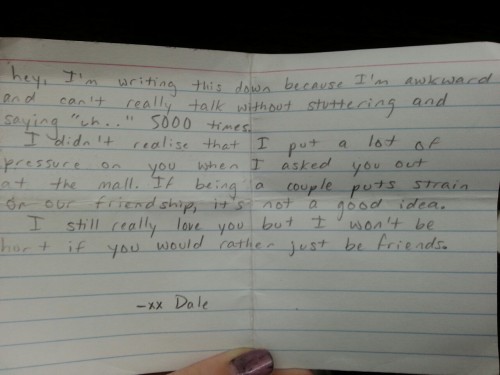 hey, I'm writing this down because I'm awkward
and can't really talk without stuttering and
saying "uh.." 5000 times.
I didn't realise that I put a lot of
pressure on you when I asked you out
at the mall. If being a couple puts strain
on our friendship, it's not a good idea.
I still really love you but I won't be
hurt if you would rather just be friends.
-xx Dale